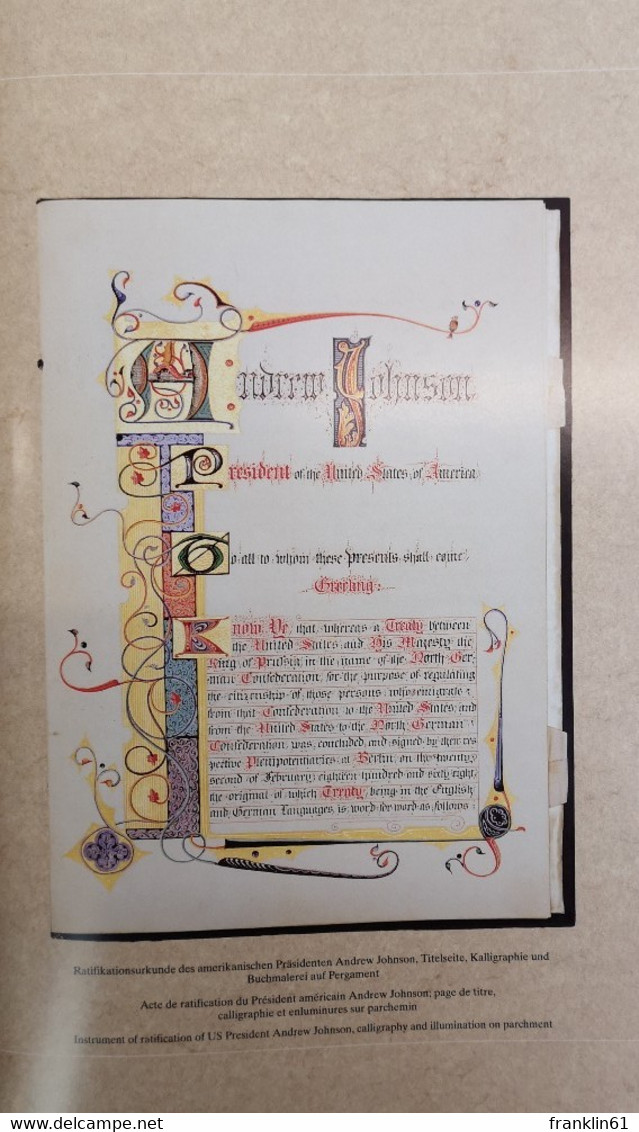 Andrew Johnson,
President of the United States of America
To all to whom these Presents shall come
Greeting:
Know Ye, that, whereas a Treaty between
the United States and His Majesty the
King of Prussia, in the name of the North Ger-
man Confederation, for the purpose of regulating
the citizenship of those persons, who emigrate
from that Confederation to the United States, and
from the United States to the North German
Confederation was concluded and signed by their res
pective Plenipotentiaries at Berlin on the twenty
second of February eighteen hundred and sixty eight,
the original of which Treaty being in the English
and German Languages is word for word as follows:
Ratifikationsurkunde des amerikanischen Präsidenten Andrew Johnson, Titelseite, Kalligraphie und
Buchmalerei auf Pergament
Acte de ratification du Président américain Andrew Johnson; page de titre,
calligraphie et enluminures sur parchemin
Instrument of ratification of US President Andrew Johnson, calligraphy and illumination on parchment
franklin61